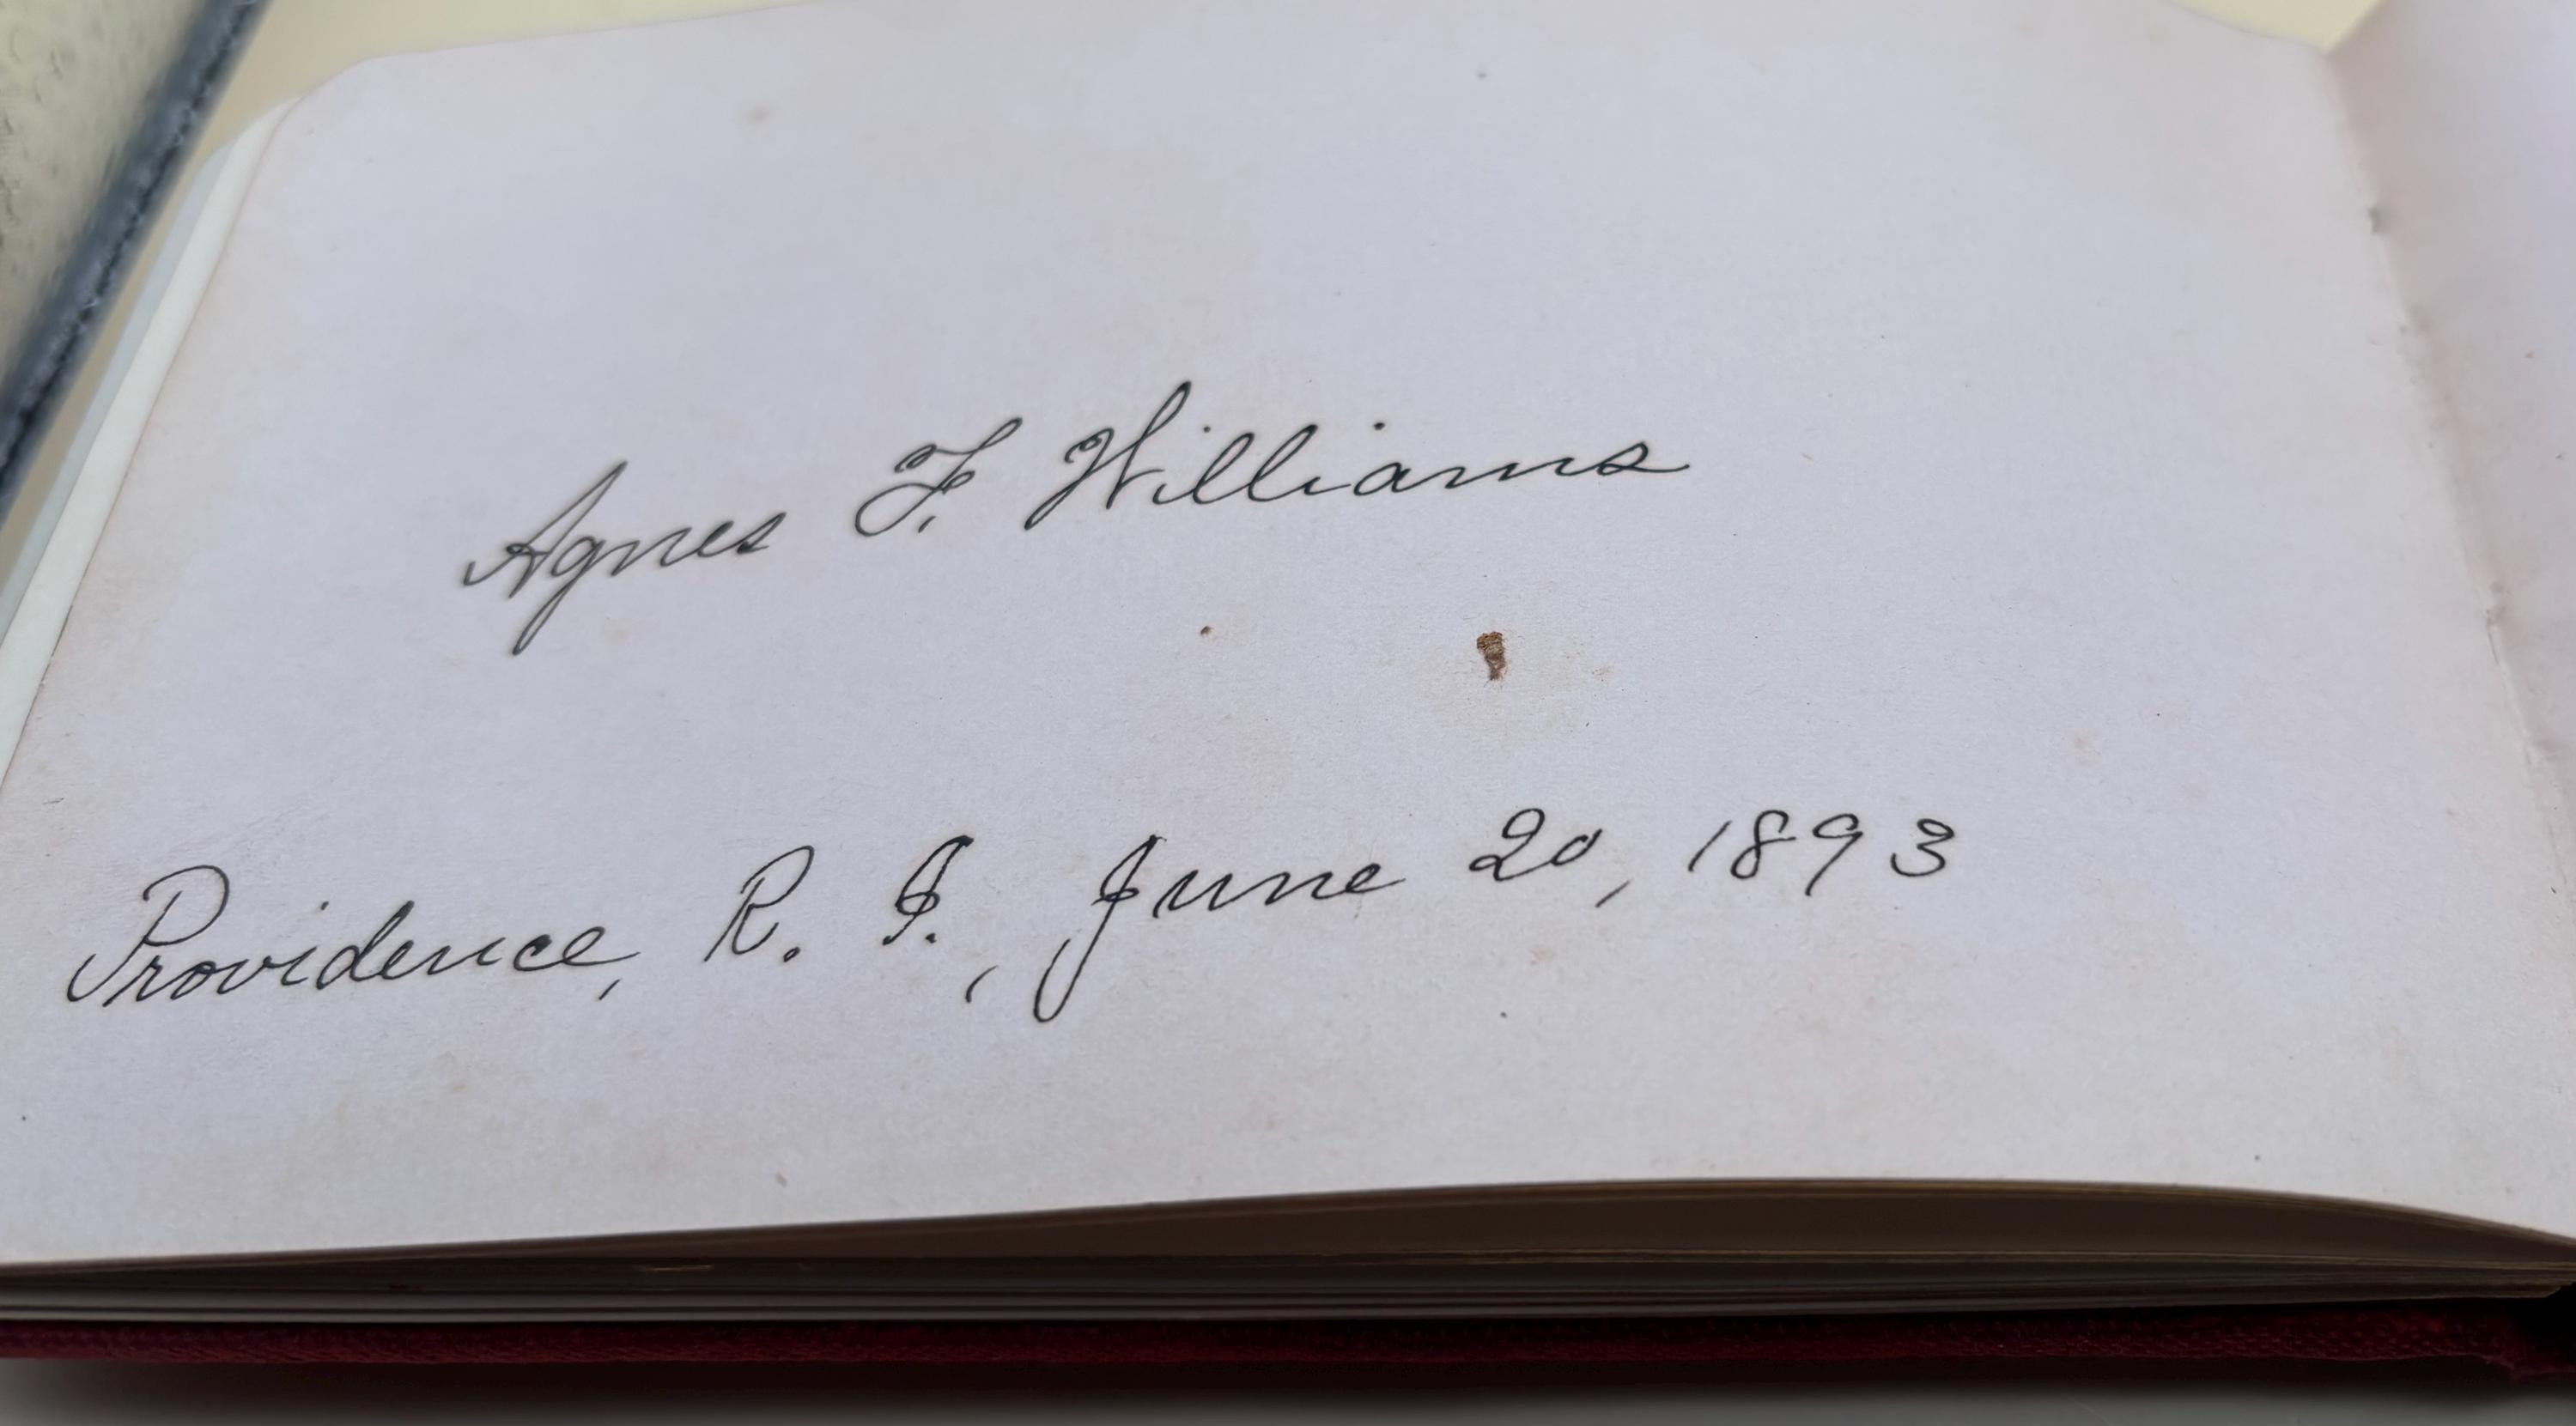 Agnes F. Williams
Providence, R. I., June 20, 1893